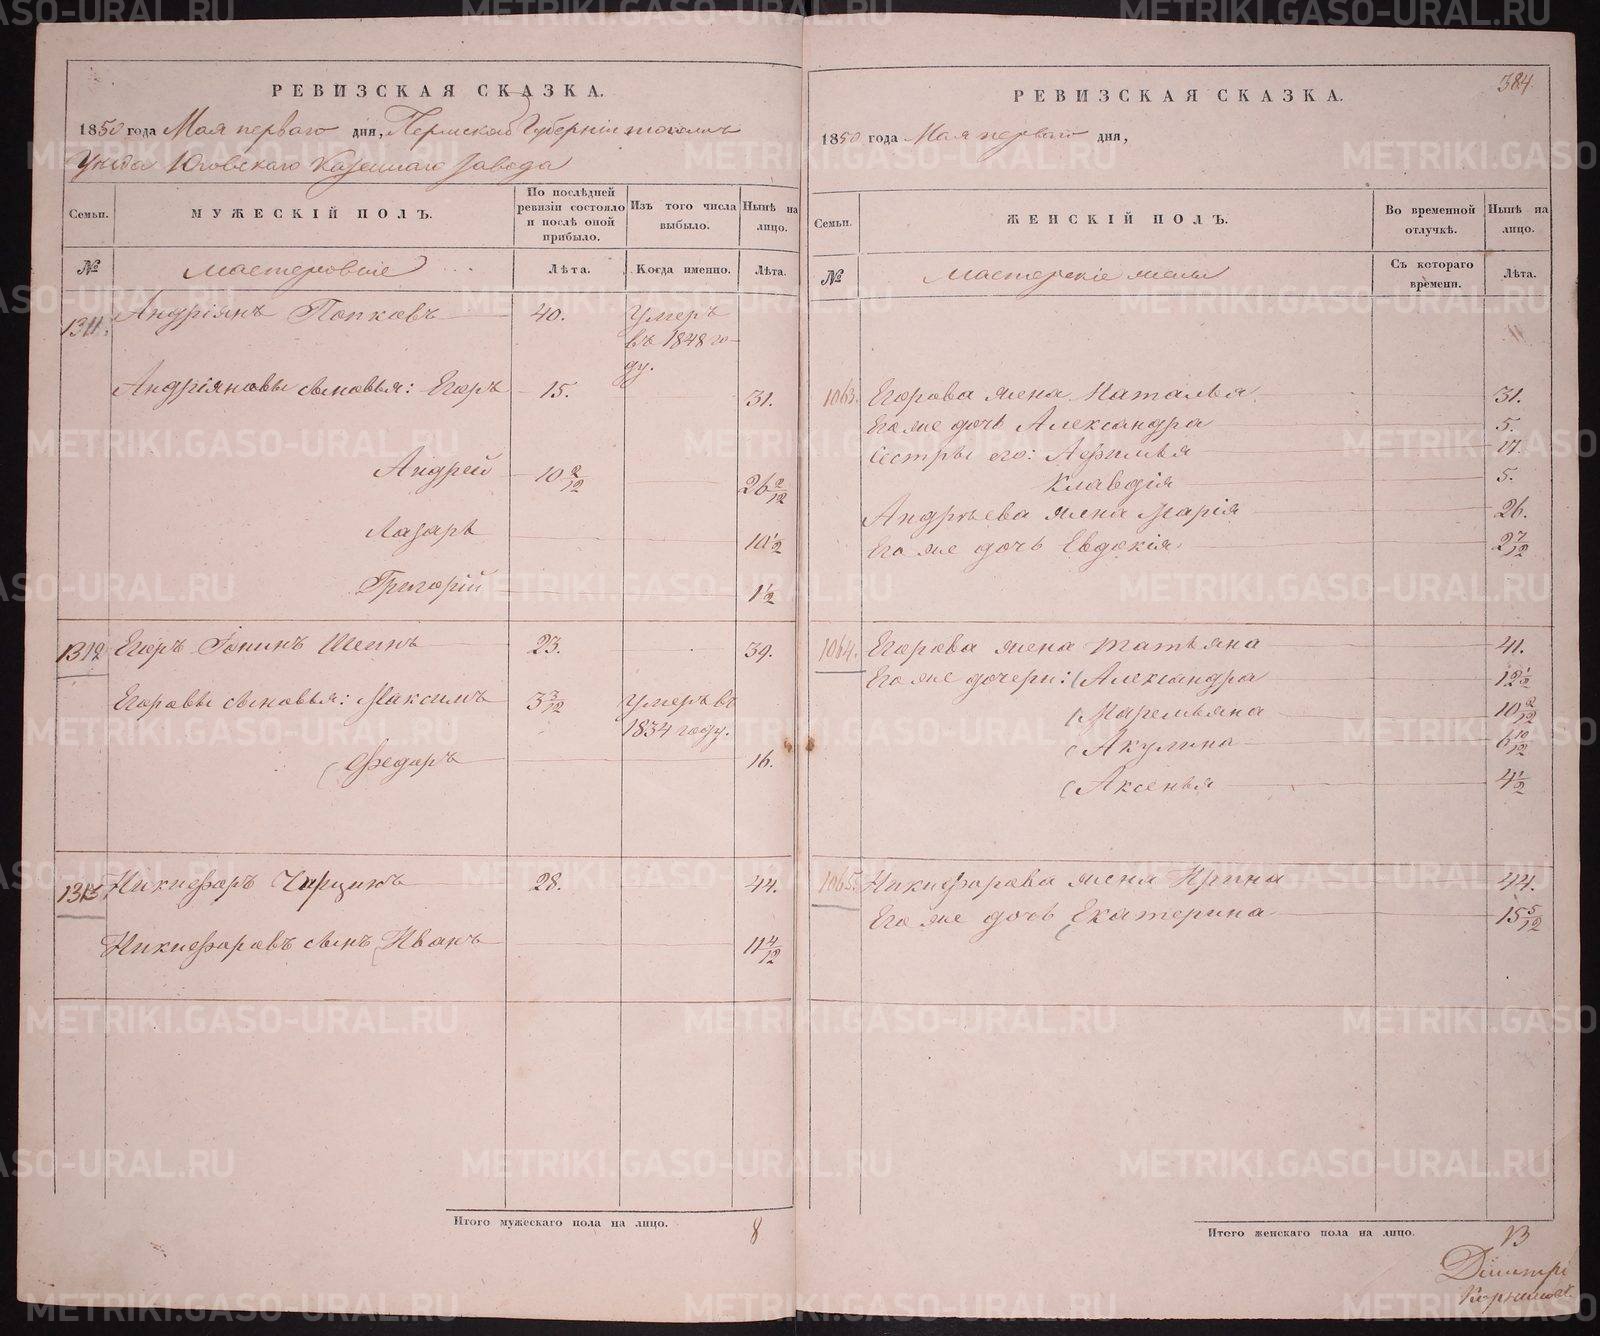 РЕВИЗСКАЯ СКАЗКА.
1850 года Мая перваго дня, Пермской Губернiи тогожъ
Уезда Юговскаго Казеннаго завода
Семьи.
МУЖЕСКIЙ ПОЛЪ.
По послѣдней ревизiи состояло и послѣ оной прибыло.
Изъ того числа выбыло.
Нынѣ на лицо.
№
Мастеровые
Лѣта.
Когда именно.
Лѣта.
1311. Андрiянъ Попковъ 40. Умеръ въ 1848 году.
Андрiяновы сыновья: Егоръ 15. 31.
Андрей 10 2/12 26 2/12
Лазарь 10 1/2
Григорiй 1 1/2
1312 Егоръ Iонинъ 23. 39.
Егоровы сыновья: Максимъ 3 3/12 Умеръ въ 1834 году.
Федоръ 16.
1313 Никифоръ 28. 44.
Никифоровъ сынъ Иванъ 11 4/12
Итого мужескаго пола на лицо. 8
384.
РЕВИЗСКАЯ СКАЗКА.
1850 года Мая перваго дня,
Семьи.
ЖЕНСКIЙ ПОЛЪ.
Во временной отлучкѣ.
Нынѣ на лицо.
№
Мастерскiе жены
Съ котораго времени.
Лѣта.
1063. Егорова жена Наталья 31.
Его же дочь Александра 5.
Сестры его: Афимья 17.
Клавдiя 5.
Андрѣева жена Марiя 26.
Его же дочь Евдокiя 2 7/12
1064. Егорова жена Татьяна 41.
Его же дочери: Александра 12 1/2
Маремьяна 10 2/12
Акулина 6 10/12
Аксенья 4 1/2
1065. Никифорова жена Ирина 44.
Его же дочь Екатерина 15 5/12
Итого женскаго пола на лицо. 13
Дмитрi
METRIKI.GASO-URAL.RU